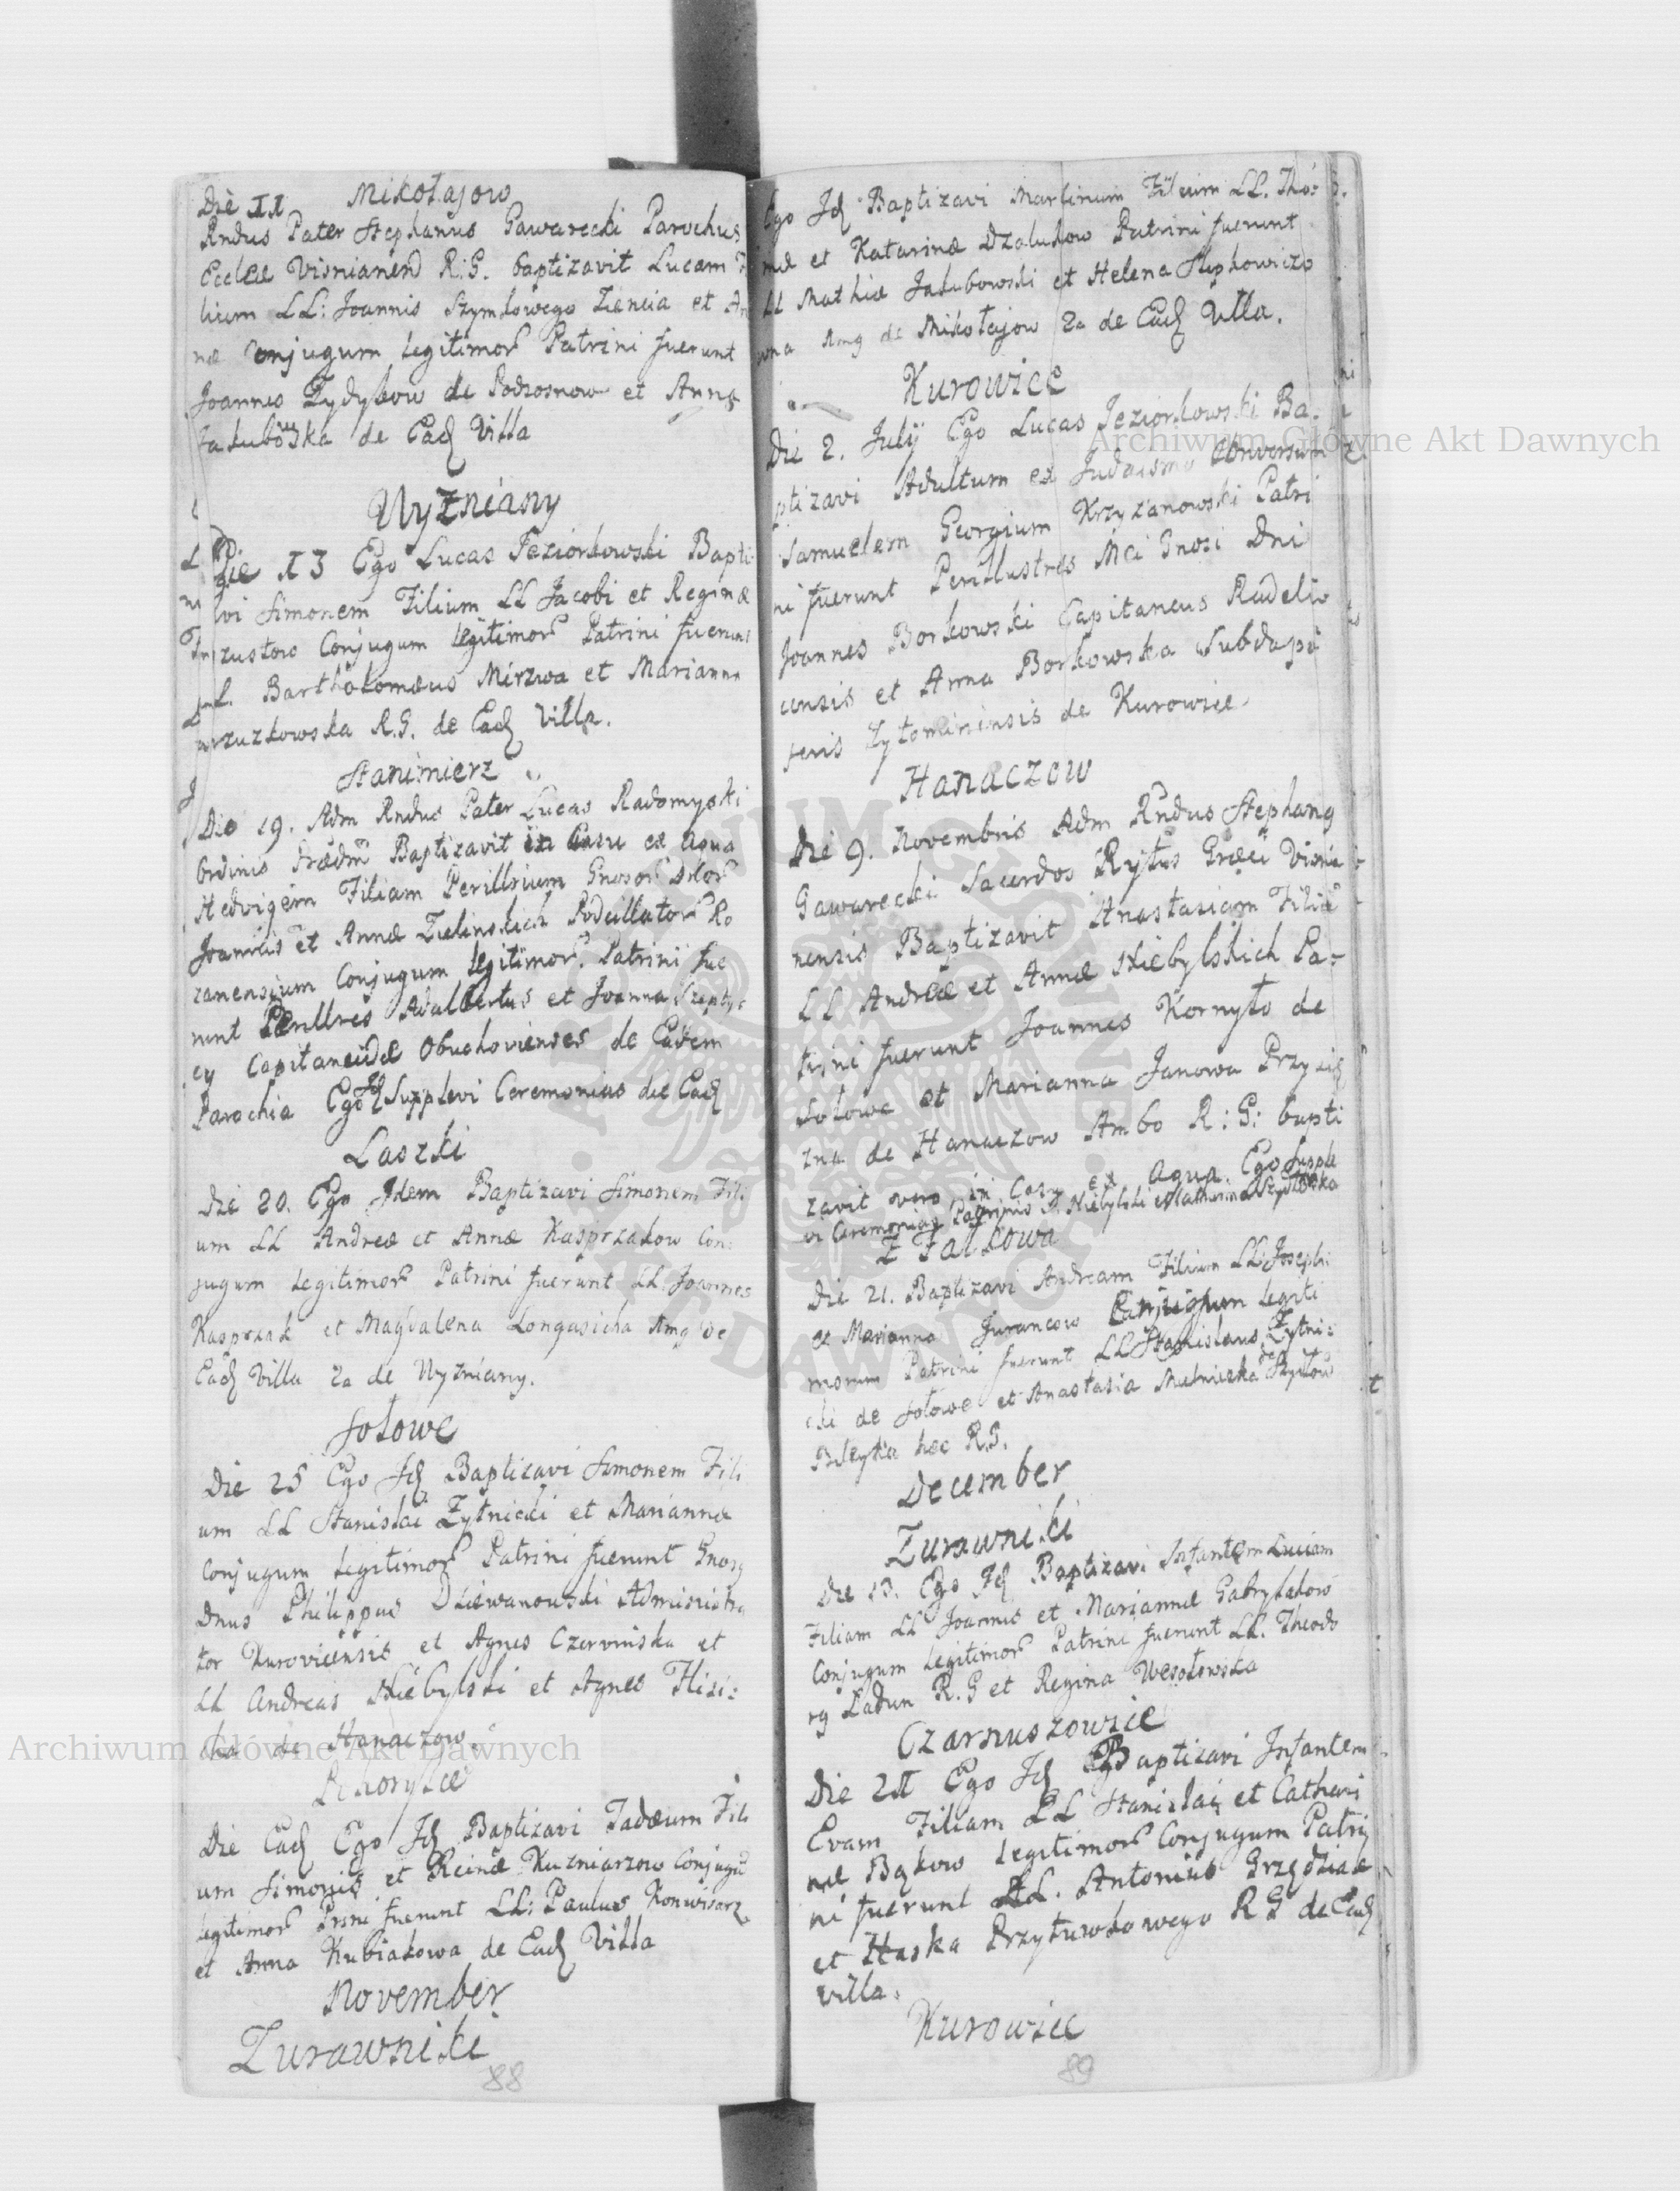 Die 11 Mikołajow
Rndus Pater Stephanus Gawarecki Parochus
Eccleæ Visnianen R:G. baptizavit Lucam
lium LL: Joannis Szymkowego Ziencia et An
næ Conjugum legitimor Patrini fuerunt
Joannes Zydykow de Podrosnow et Anna
Jakubowska de Ead Villa
Wyzniany
Die 13 Ego Lucas Jeziorkowski Bapti
vi Simonem Filium LL Jacobi et Reginæ
Conjugum legitimor Patrini fuerunt
LL. Bartholomæus Mirzwa et Marianna
R.G. de Ead Villa.
Stanimierz
Die 19. Adm Rndus Pater Lucas Radomyski
Ordinis Prædm Baptizavit in Casu ex Aqua
Hedvigem Filiam Perillrium Gnosor
Joannis et Annæ Zielinskich Podcillator Ro
zanensium Conjugum legitimor. Patrini fue
runt Perillres Adalbertus et Joanna Szepty
cy Capitaneidæ Obuchovienses de Eadem
Parochia Ego Id Supplevi Ceremonias die Ead
Laszki
Die 20. Ego Idem Baptizavi Simonem Fili
um LL Andreæ et Annæ Kasprzakow Con
jugum legitimor Patrini fuerunt LL Joannes
Kasprzak et Magdalena Longasicha Amg de
Ead Villa 2a de Wyzniany.
Sołowe
Die 25 Ego Id Baptizavi Simonem Fili
um LL Stanislai Zytnicki et Mariannæ
Conjugum legitimor Patrini fuerunt Gnos
Dnus Philippus Dziewanowski Administra
tor Kuroviciensis et Agnes Czerwinska et
LL Andreas Niebylski et Agnes Hisi:
cha de Hanaczow.
Die Ead Ego Id Baptizavi Tadæum Fili
um Simonis et Reinæ Kuzniarzow Conjugũ
legitimor Prni fuerunt LL: Paulus Konwisarz
et Anna Kubiakowa de Ead Villa
November
Zurawniki
88
Ego Id Baptizavi Martinum Filium LL. Tho:
mæ et Katarinæ Dzalukow Patrini fuerunt
LL Mathiæ Jakubowski et Helena Stepkowiczo
wna Amg de Mikołajow 2a de Ead Villa.
Kurowice
Die 2. Julÿ Ego Lucas Jeziorkowski Ba-
ptizavi Adultum ex Judaismo Conversum
Samuelem Georgium Krzyzanowski Patri
ni fuerunt Perillustres Mci Gnosi Dni
Joannes Borkowski Capitaneus Radeliv
censis et Anna Borkowska Subdapi
feris Zytomiriensis de Kurowice
Hanaczow
Die 9. Novembris Adm Rndus Stephanus
Gawarecki Sacerdos Rytus Græci Visnia
nensis Baptizavit Anastasiam Filiã
LL Andreæ et Annæ Niebylskich Pa-
trini fuerunt Joannes Kornyło de
Sołowe et Marianna Janowa Przysię
zna de Hanaczow Ambo R:G: bapti
zavit vero in Casu ex Aqua. Ego Supple
vi Ceremonias Patrinis J. Niebylski et Catharina
Z Fałkowa
Die 21. Baptizavi Andream Filium LL: Josephi
et Marianna Jurancow Conjugum legiti
morum Patrini fuerunt LL Stanislaus Zytni:
cki de Sołowe et Anastasia Mielnicka de
hæc R.G.
December
Zurawniki
Die 13. Ego Id Baptizavi Infantem Luciam
Filiam LL Joannis et Mariannæ Gabrylakow
Conjugum legitimor Patrini fuerunt LL. Theodo
rg Ladun R.G et Regina Wesołowska
Czarnuszowice
Die 21 Ego Id Baptizavi Infantem
Evam Filiam LL Stanislai et Cathari
næ Bąkow legitimor Conjugum Patri
ni fuerunt LL. Antonius Grzędziak
et Haska Przytuwskowego R G de Ead
Villa.
Kurowice
89
Archiwum Główne Akt Dawnych
Archiwum Główne Akt Dawnych